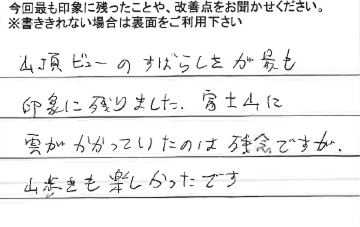 今回最も印象に残ったことや、改善点をお聞かせください。
※書ききれない場合は裏面をご利用下さい
山頂ビューのすばらしさが最も
印象に残りました。富士山に
雲がかかっていたのは残念ですが、
山歩きも楽しかったです